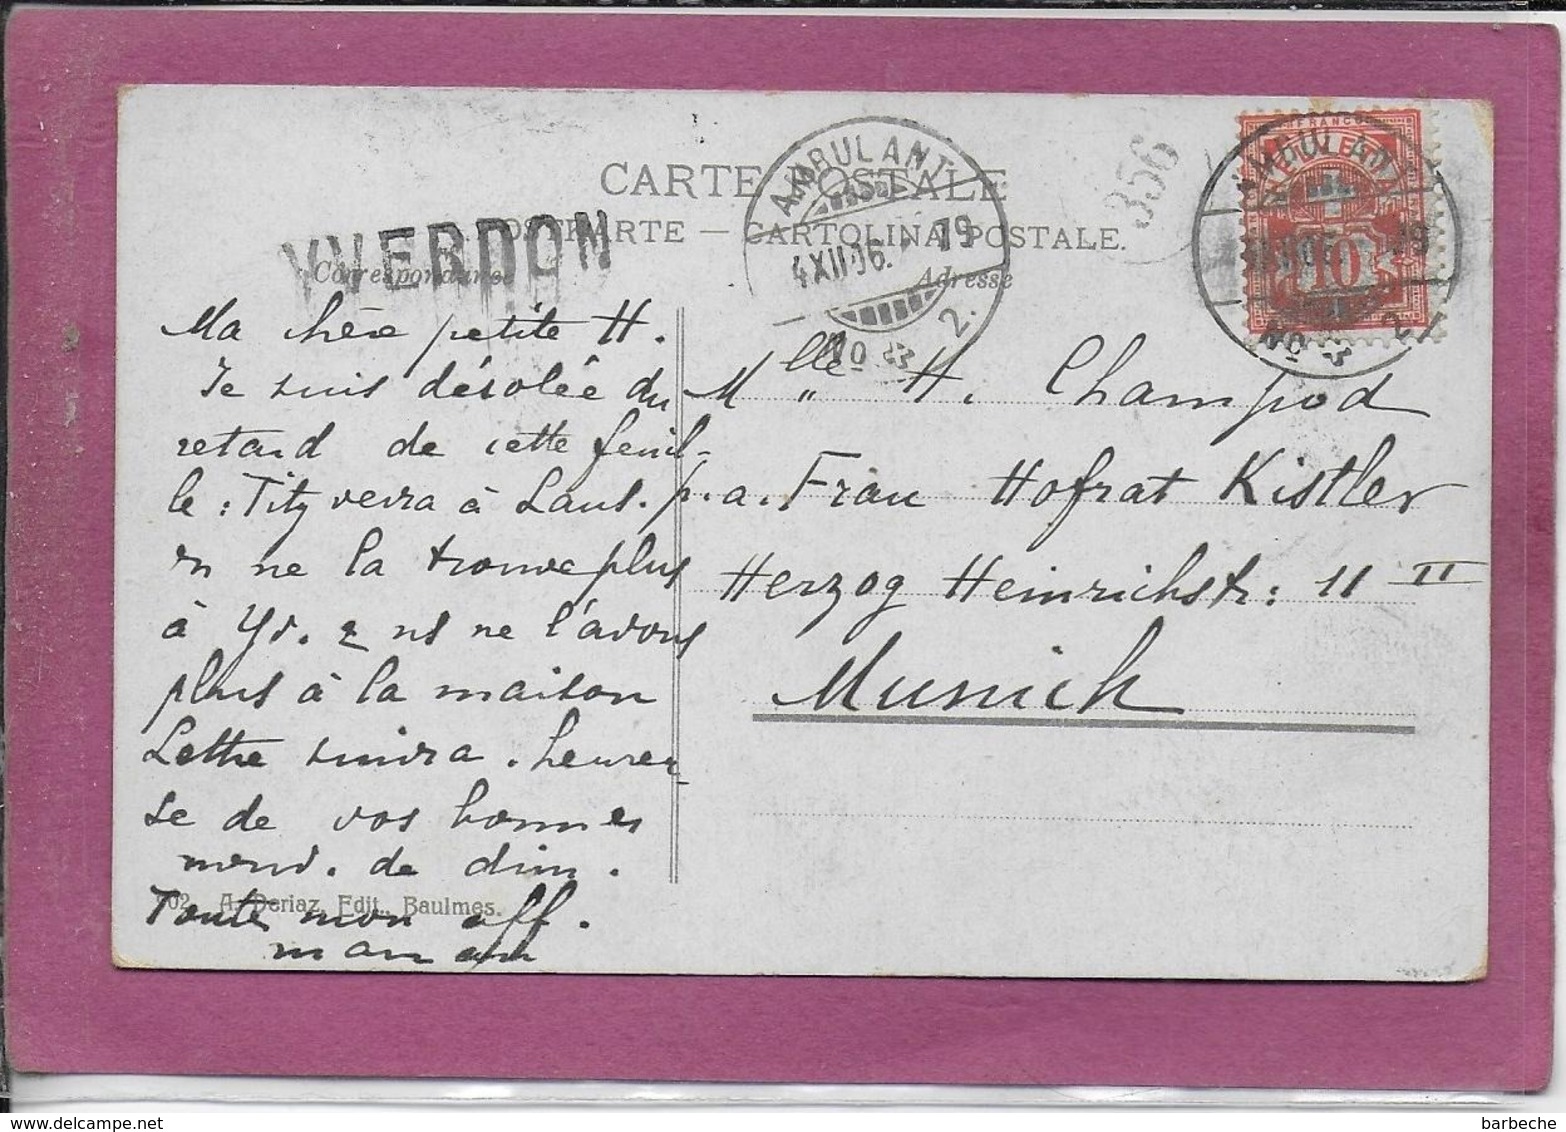 CARTE POSTALE
POSTKARTE — CARTOLINA POSTALE.
YVERDON
Correspondance
Adresse
AMBULANT
4 XII 06. 19
No 2.
356
FRANCO
AMBULANT
10
4 XII 06. 19
No 2
Ma chère petite H.
Je suis désolée du
retard de cette feuil-
le : Tity verra à Laus.
ne la trouve plus
à Yv. & ns ne l'avons
plus à la maison
Lettre suivra . heureu
se de vos bonnes
. de dim.
Toute mon aff.
maman
Mlle H. Champod
p.a. Frau Hofrat Kistler
Herzog Heinrichstr: 11 II
Munich
902 A. Deriaz, Edit., Baulmes.
barbeche